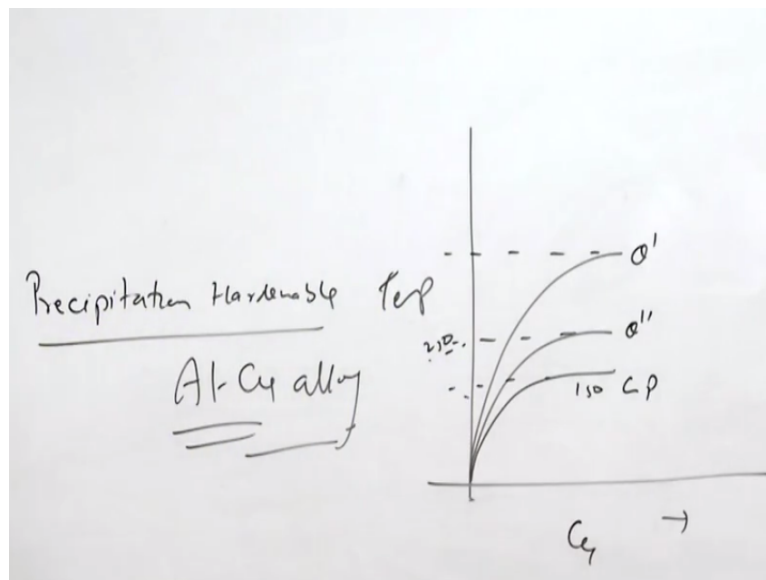 Precipitation Hardenable
Al-Cu alloy
Temp
θ'
θ"
150 GP
Cu →